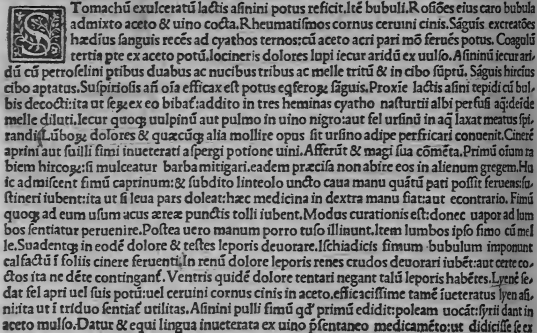 S Tomachũ exulceratũ lactis asinini potus reficit. Itẽ bubuli. Rosiões eius caro bubula
admixto aceto & uino cocta. Rheumatismos cornus ceruini cinis. Sãguis excreatões
hædius sanguis recẽs ad cyathos ternos: cũ aceto acri pari mõ feruẽs potus. Coagulũ
tertia pte ex aceto potũ. Iocineris dolores lupi iecur aridũ ex uulso. Asininũ iecur ari-
dũ cũ petroselini ptibus duabus ac nucibus tribus ac melle tritũ & in cibo sũptũ. Sãguis hircius
cibo aptatus. Suspiriosis añ oĩa efficax est potus eqserog sãguis. Proxie lactis asini tepidi cũ bul-
bis decocti: ita ut seʒ ex eo bibat: addito in tres heminas cyatho nasturtii albi perfusi aq: deide
melle diluti. Iecur quoqʒ uulpinũ aut pulmo in uino nigro: aut fel ursinũ in aq laxat meatus spi-
randi. Lũboʒ dolores & quæcũqʒ alia mollire opus sit ursino adipe perfricari conuenit. Cinerẽ
aprini aut suilli fimi inueterati aspergi potione uini. Afferũt & magi sua cõmẽta. Primũ oĩum ra
biem hircoʒ: si mulceatur barba mitigari. eadem præcisa non abire eos in alienum gregem. Hu
ic admiscent fimũ caprinum: & subdito linteolo uncto caua manu quãtũ pati possit feruens: su-
stineri iubent: ita ut si leua pars doleat: hæc medicina in dextra manu fiat: aut econtrario. Fimũ
quoqʒ ad eum usum acus æreæ punctis tolli iubent. Modus curationis est: donec uapor ad lum
bos sentiatur peruenire. Postea uero manum porro tuso illinunt. Item lumbos ipso fimo cũ mel
le. Suadentqʒ in eodẽ dolore & testes leporis deuorare. Ischiadicis fimum bubulum imponunt
calfactũ ĩ foliis cinere feruenti. In renũ dolore leporis renes crudos deuorari iubẽt: aut certe co-
ctos ita ne dẽte contingant̃. Ventris quidẽ dolore tentari negant talũ leporis habẽtes. Lyenẽ se-
dat fel apri uel suis potũ: uel ceruini cornus cinis in aceto. efficacissime tamẽ iueteratus lyen asi-
ni: ita ut ĩ triduo sentiat̃ utilitas. Asinini pulli fimũ qđ primũ edidit: poleam uocãt: syrii dant in
aceto mulso. Datur & equi lingua inueterata ex uino p̃sentaneo medicamẽto: ut didicisse ex